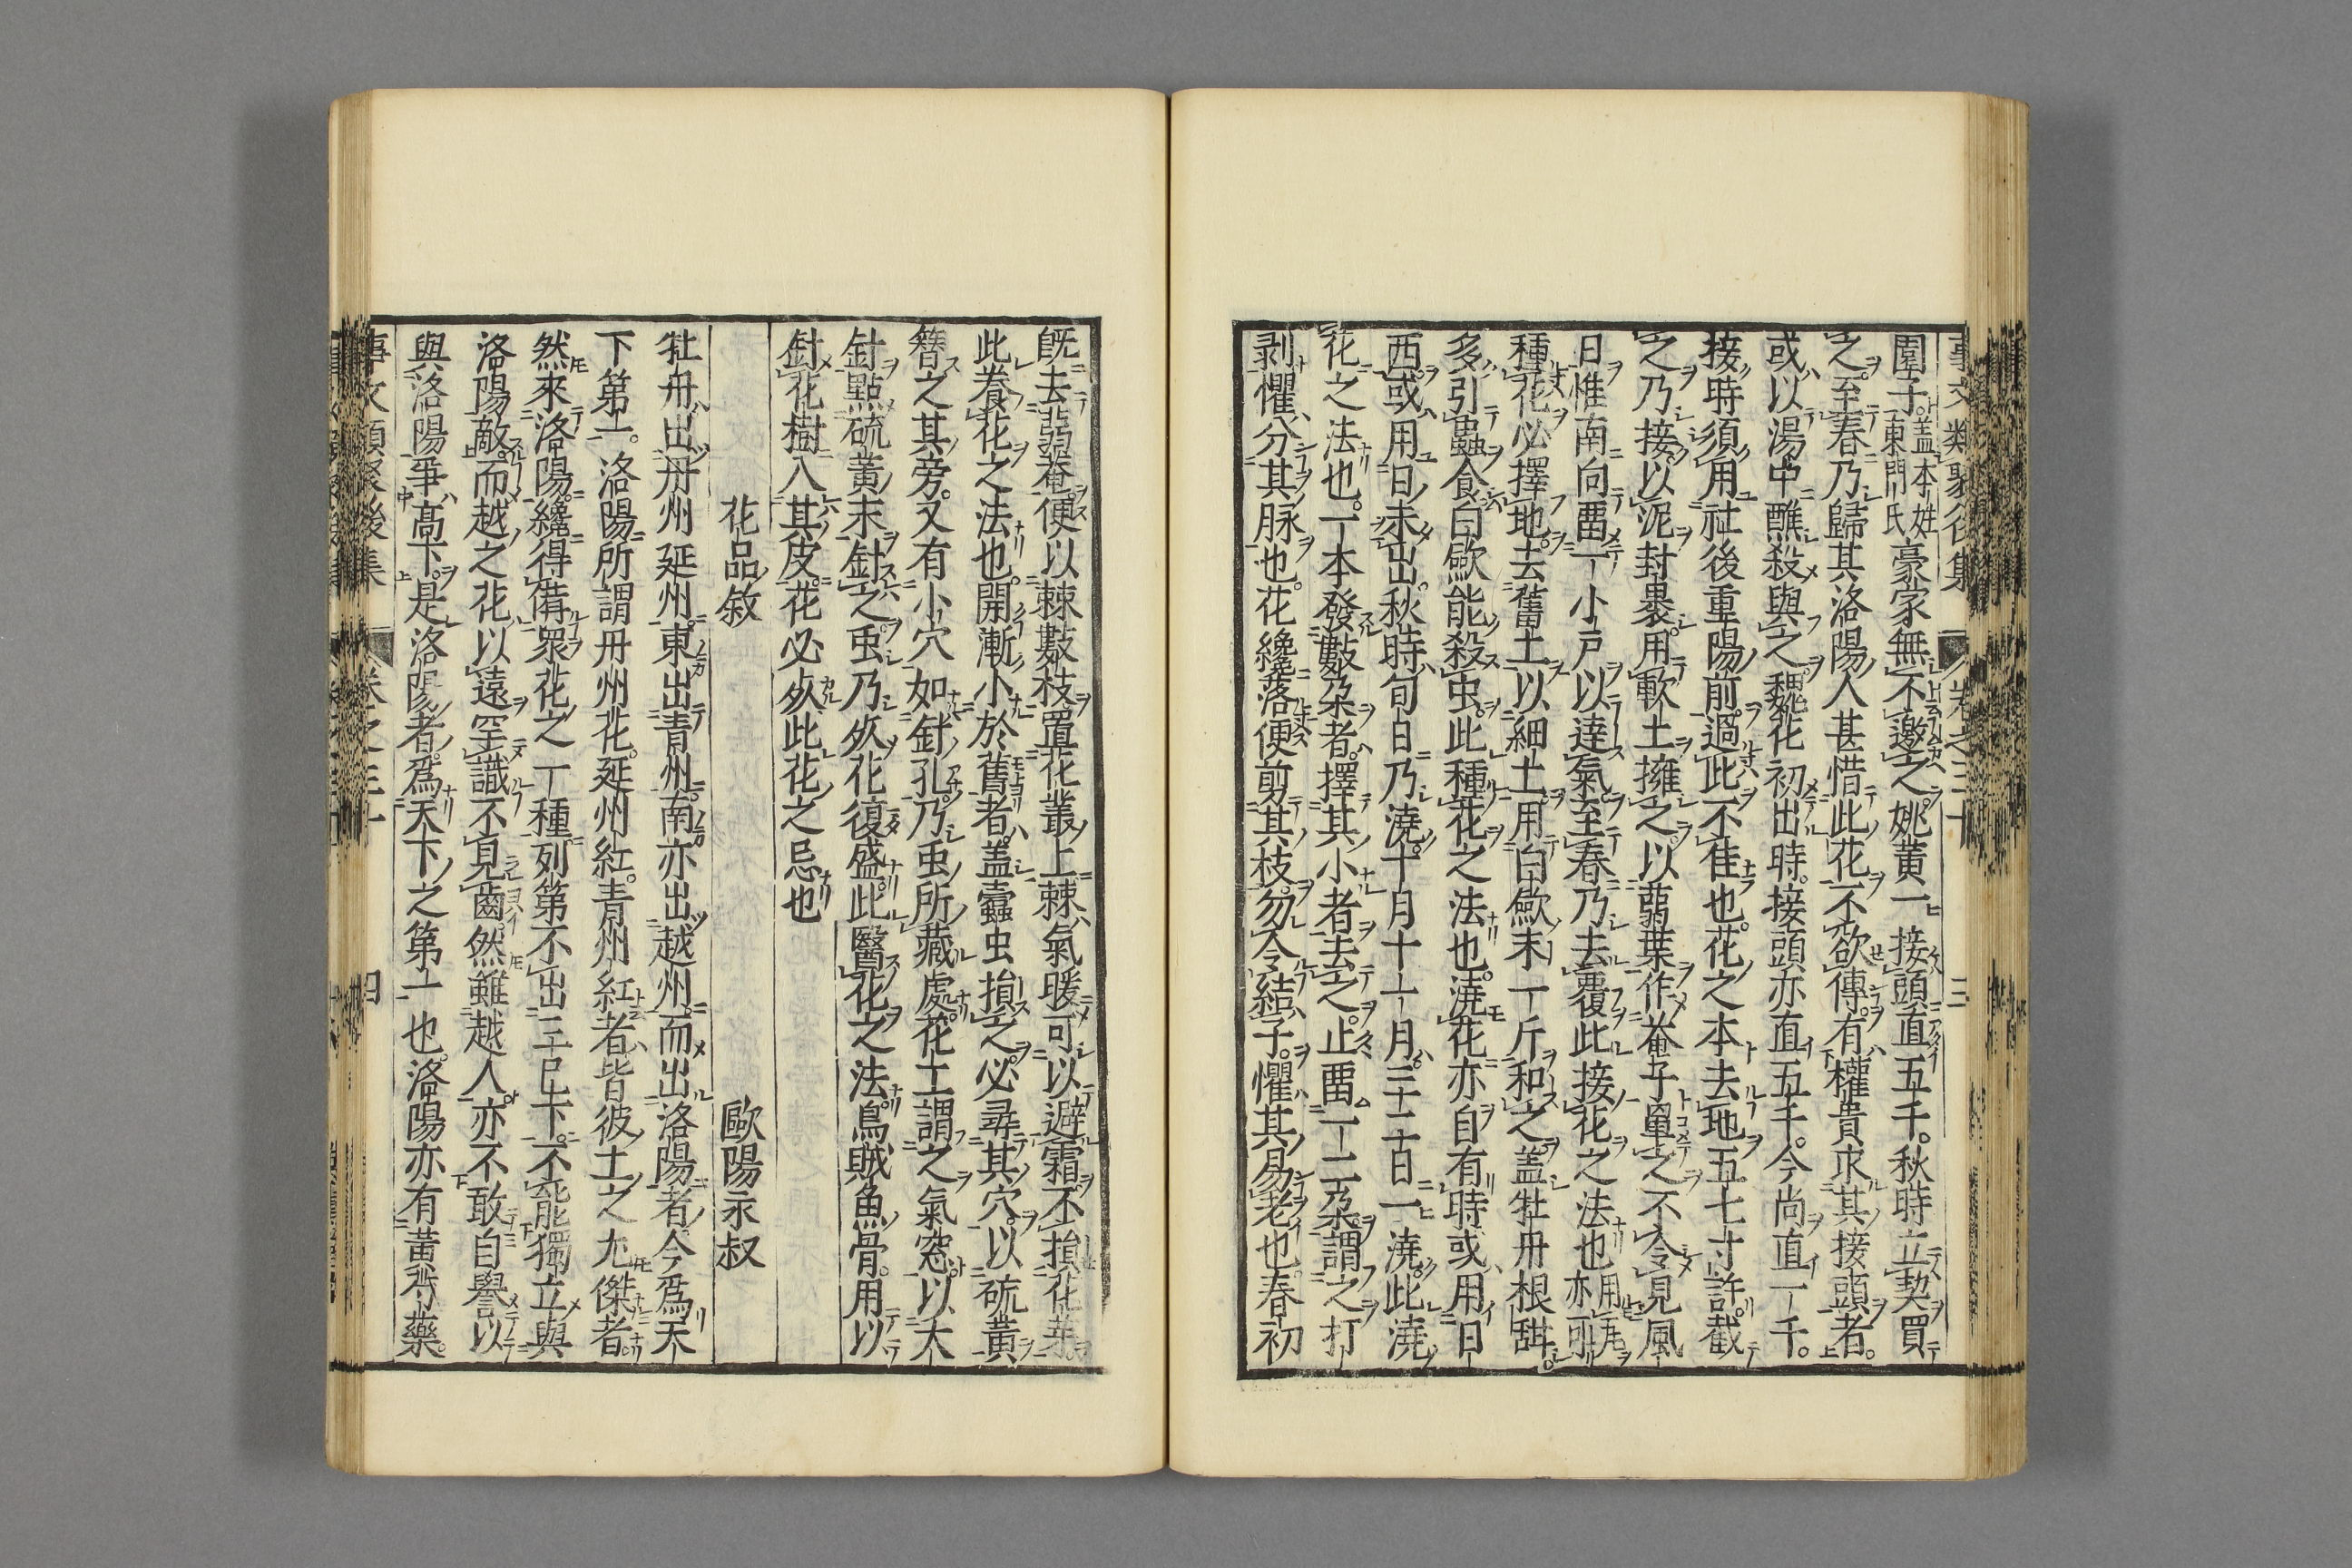 事文類聚後集 卷之三十 三
園子蓋本姓東門氏豪家無不邀之姚黃一接頭直五千秋時立契買
之至春乃歸其洛陽人甚惜此花不欲傳有權貴求其接頭者
或以湯中蘸殺與之魏花初出時接頭亦直五千今尚直一千
接時須用社後重陽前過此不佳也花之本去地五七寸許截
之乃接以泥封裹用軟土擁之以蒻葉作菴子罩之不令見風
日惟南向畱一小戶以達氣至春乃去覆此接花之法也用瓦亦可
種花必擇地去舊土以細土用白歛末一斤和之蓋牡丹根甜
多引蟲食白歛能殺虫此種花之法也澆花亦自有時或用日
西或用日未出秋時旬日乃澆十月十一月三二十日一澆此澆
花之法也一本發數朶者擇其小者去之止畱一二朶謂之打
剥懼分其脉也花纔落便剪其枝勿令結子懼其易老也春初
旣去蒻菴便以棘數枝置花叢上棘氣暖可以避霜不損花芽
此養花之法也開漸小於舊者蓋蠹虫損之必尋其穴以硫黃
簪之其旁又有小穴如針孔乃虫所藏處花工謂之氣窓以大
針點硫黃末針之虫乃死花復盛此醫花之法烏賊魚骨用以
針花樹入其皮花必死此花之忌也
花品敘 歐陽永叔
牡丹出丹州延州東出青州南亦出越州而出洛陽者今爲天
下第一洛陽所謂丹州花延州紅青州紅者皆彼土之尤傑者
然來洛陽纔得備衆花之一種列第不出三已下不能獨立與
洛陽敵而越之花以遠罕識不見齒然雖越人亦不敢自譽以
與洛陽爭高下是洛陽者爲天下之第一也洛陽亦有黃芍藥
事文類聚後集 卷之三十 四